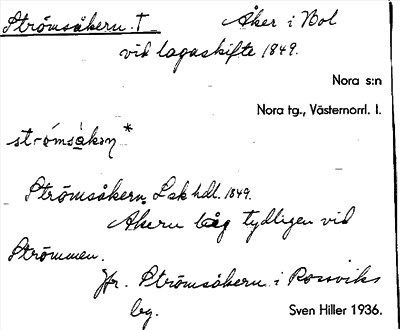 Strömsåkern. T Åker i Bol
vid lagaskifte 1849.
Nora s:n
Nora tg., Västernorrl. l.
strómsàken *
Strömsåkern Lsk hdl. 1849.
Åkern låg tydligen vid
Strömmen.
Jfr. Strömsåkern i Rossviks
bg.
Sven Hiller 1936.